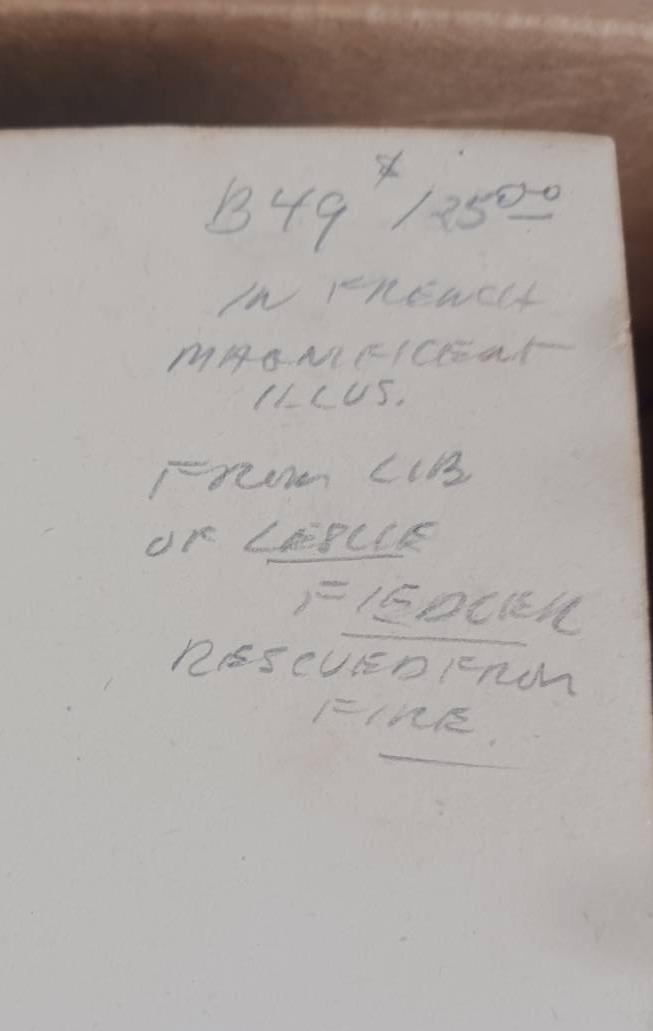 B49 / 25.00
IN FRENCH
MAGNIFICENT
ILLUS.
FROM LIB
OF LESLIE
FIEDLER
RESCUED FROM
FIRE.